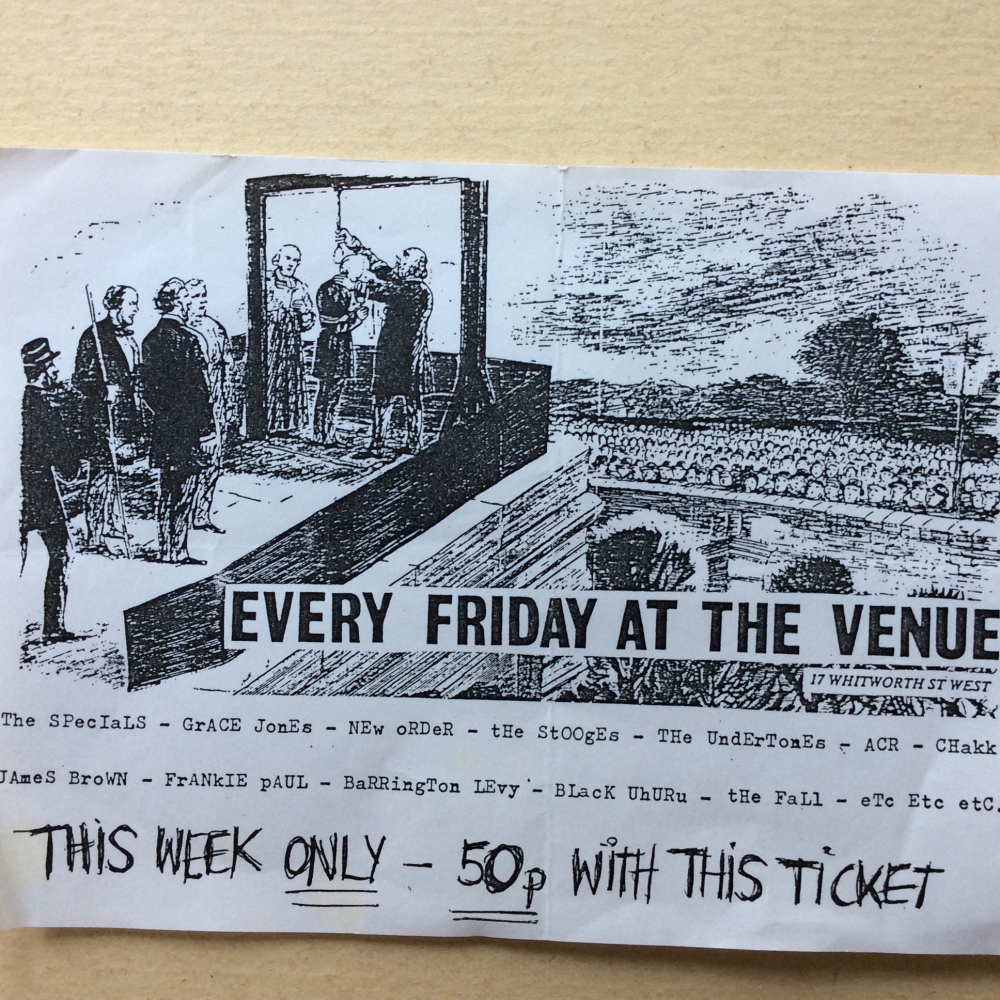 EVERY FRIDAY AT THE VENUE
17 WHITWORTH ST WEST
The SPecIaLS - GrACE JonEs - NEw oRDeR - tHe StOOgEs - THe UndErTonEs - ACR - CHakk
JAmeS BroWN - FrANkIE pAUL - BaRRingTon LEvy - BLacK UhURu - tHe FaLl - eTc Etc etC.
THIS WEEK ONLY - 50p WITH THIS TICKET